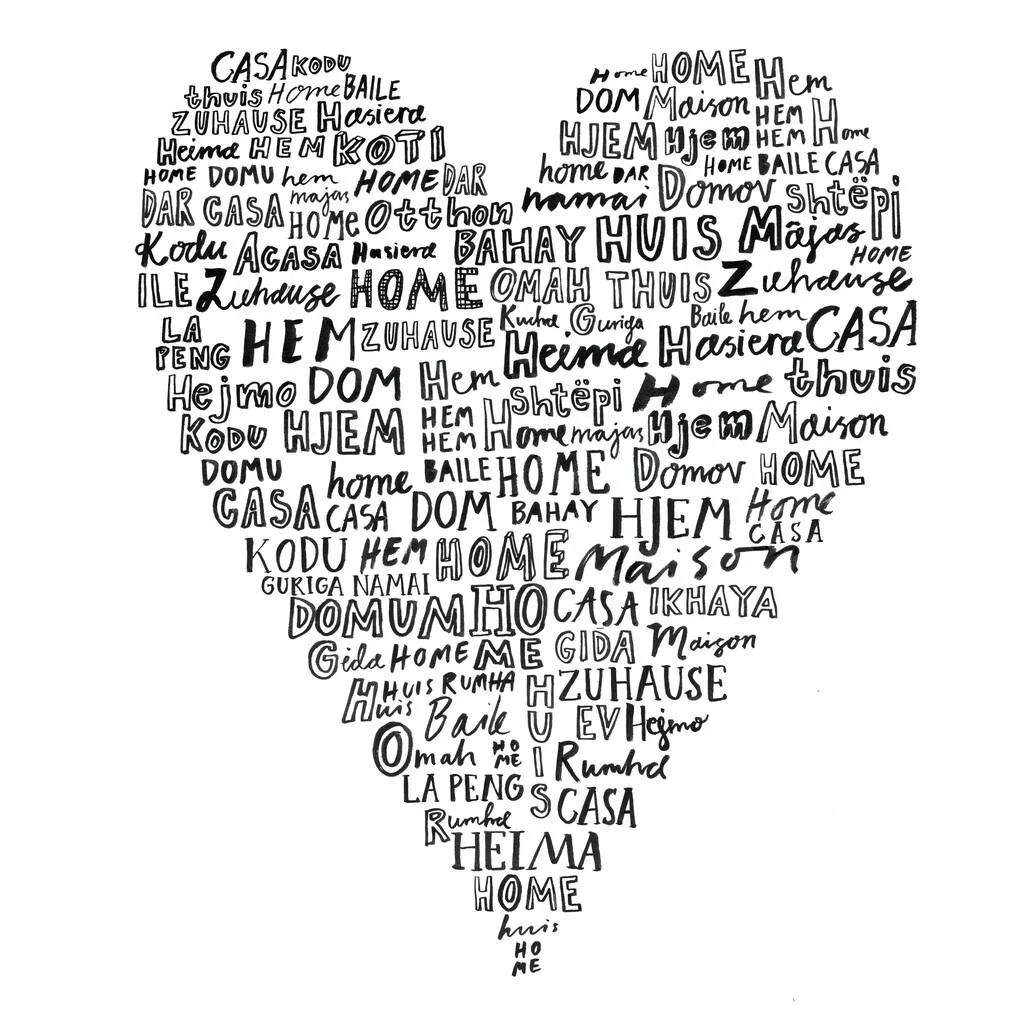 CASA KODU
thuis Home BAILE
ZUHAUSE Hasiera
Heima HEM KOTI
HOME DOMU hem majas HOME DAR
DAR CASA HOMe Otthon
Kodu ACASA Hasiera BAHAY HUIS Mãjas HOME
Home HOME Hem
DOM Maison HEM
HJEM Hjem HEM Home
home DAR HOME BAILE CASA
namai Domov shtëpi
ILE Zuhause HOME OMAH THUIS Zuhause
LA PENG HEM ZUHAUSE Kucha Guriga Baile hem CASA
Heima Hasiera
Hejmo DOM Hem shtëpi Home thuis
KODU HJEM HEM HEM Home majas Hjem Maison
DOMU home BAILE HOME Domov HOME
CASA CASA DOM BAHAY HJEM Home CASA
KODU HEM HOME Maison
GURIGA NAMAI
DOMUM HOME CASA IKHAYA
Gida HOME GIDA Maison
Huis HUIS RUMHA HUIS ZUHAUSE
Baile EV Hejmo
Omah HOME Rumha
LA PENG CASA
Rumha
HEIMA
HOME
huis
HO
ME